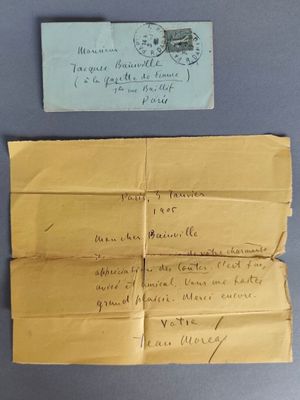 Monsieur
Jacques Bainville
(à la gazette de France)
rue Baillif
Paris
Paris, 5 Janvier
1905
Mon cher Bainville
de votre charmante
appréciation des Contes. C'est fin,
avisé et amical. Vous me faites
grand plaisir. Merci encore.
Votre
Jean Moréas